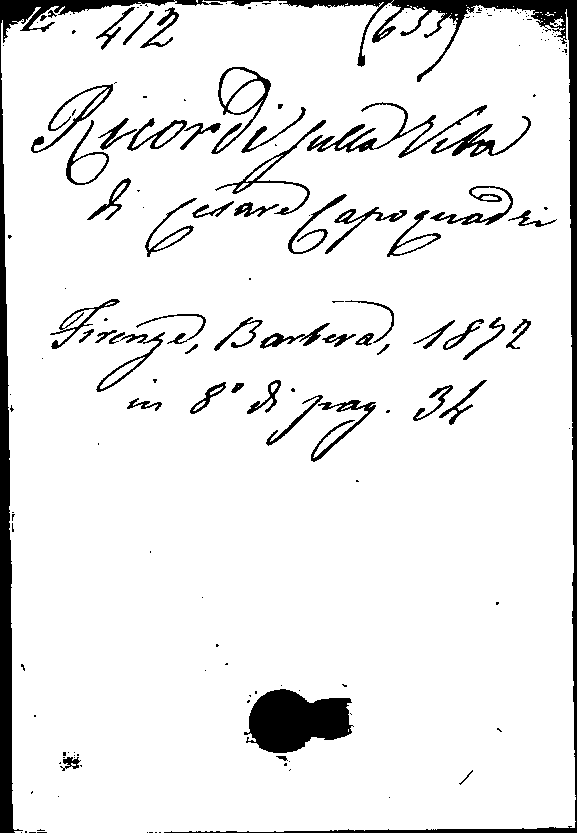 L. 412 (633)
Ricordi sulla Vita
di Cesare Capoquadri
Firenze, Barbera, 1872
in 8° di pag. 34